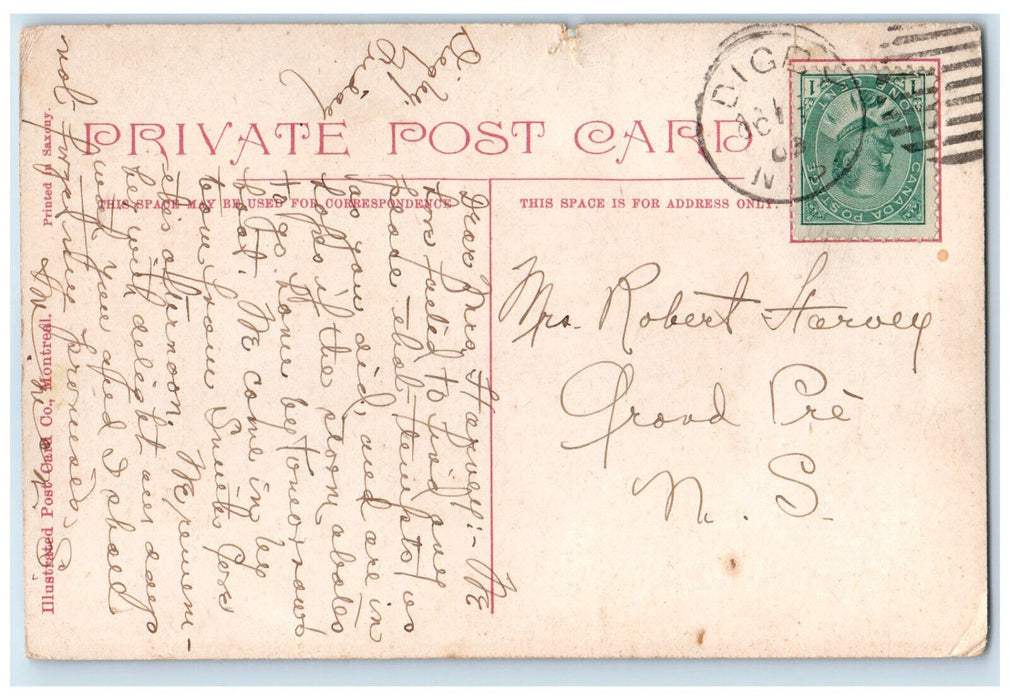 PRIVATE POST CARD
THIS SPACE MAY BE USED FOR CORRESPONDENCE
THIS SPACE IS FOR ADDRESS ONLY.
Printed in Saxony.
Illustrated Post Card Co., Montreal.
DIGBY
OC 1
N.S.
CANADA POSTAGE
ONE CENT
1 1
Mrs. Robert Harvey
Grand Pré
N. S.
Digby.
Friday
Dear Mrs. Harvey:- We
have failed to find any
place that tempts us
as you did, and are in
hopes if the storm abates
to go home by tomorrow's
boat. We come in by
tow from Smiths Cove
this afternoon. We remem-
ber with delight our days
with you and I shall
not forget my promises.